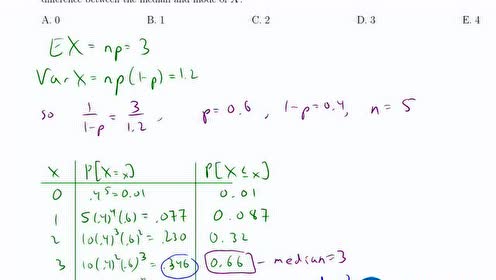 difference between the median and mode of X?
A. 0 B. 1 C. 2 D. 3 E. 4
EX = np = 3
Var X = np(1-p) = 1.2
so 1/(1-p) = 3/1.2, p = 0.6, 1-p = 0.4, n = 5
x P[X=x] P[X≤x]
0 .4^5 = 0.01 0.01
1 5(.4)^4(.6) = .077 0.087
2 10(.4)^3(.6)^2 = .230 0.32
3 10(.4)^2(.6)^3 = .346 0.66 - median = 3